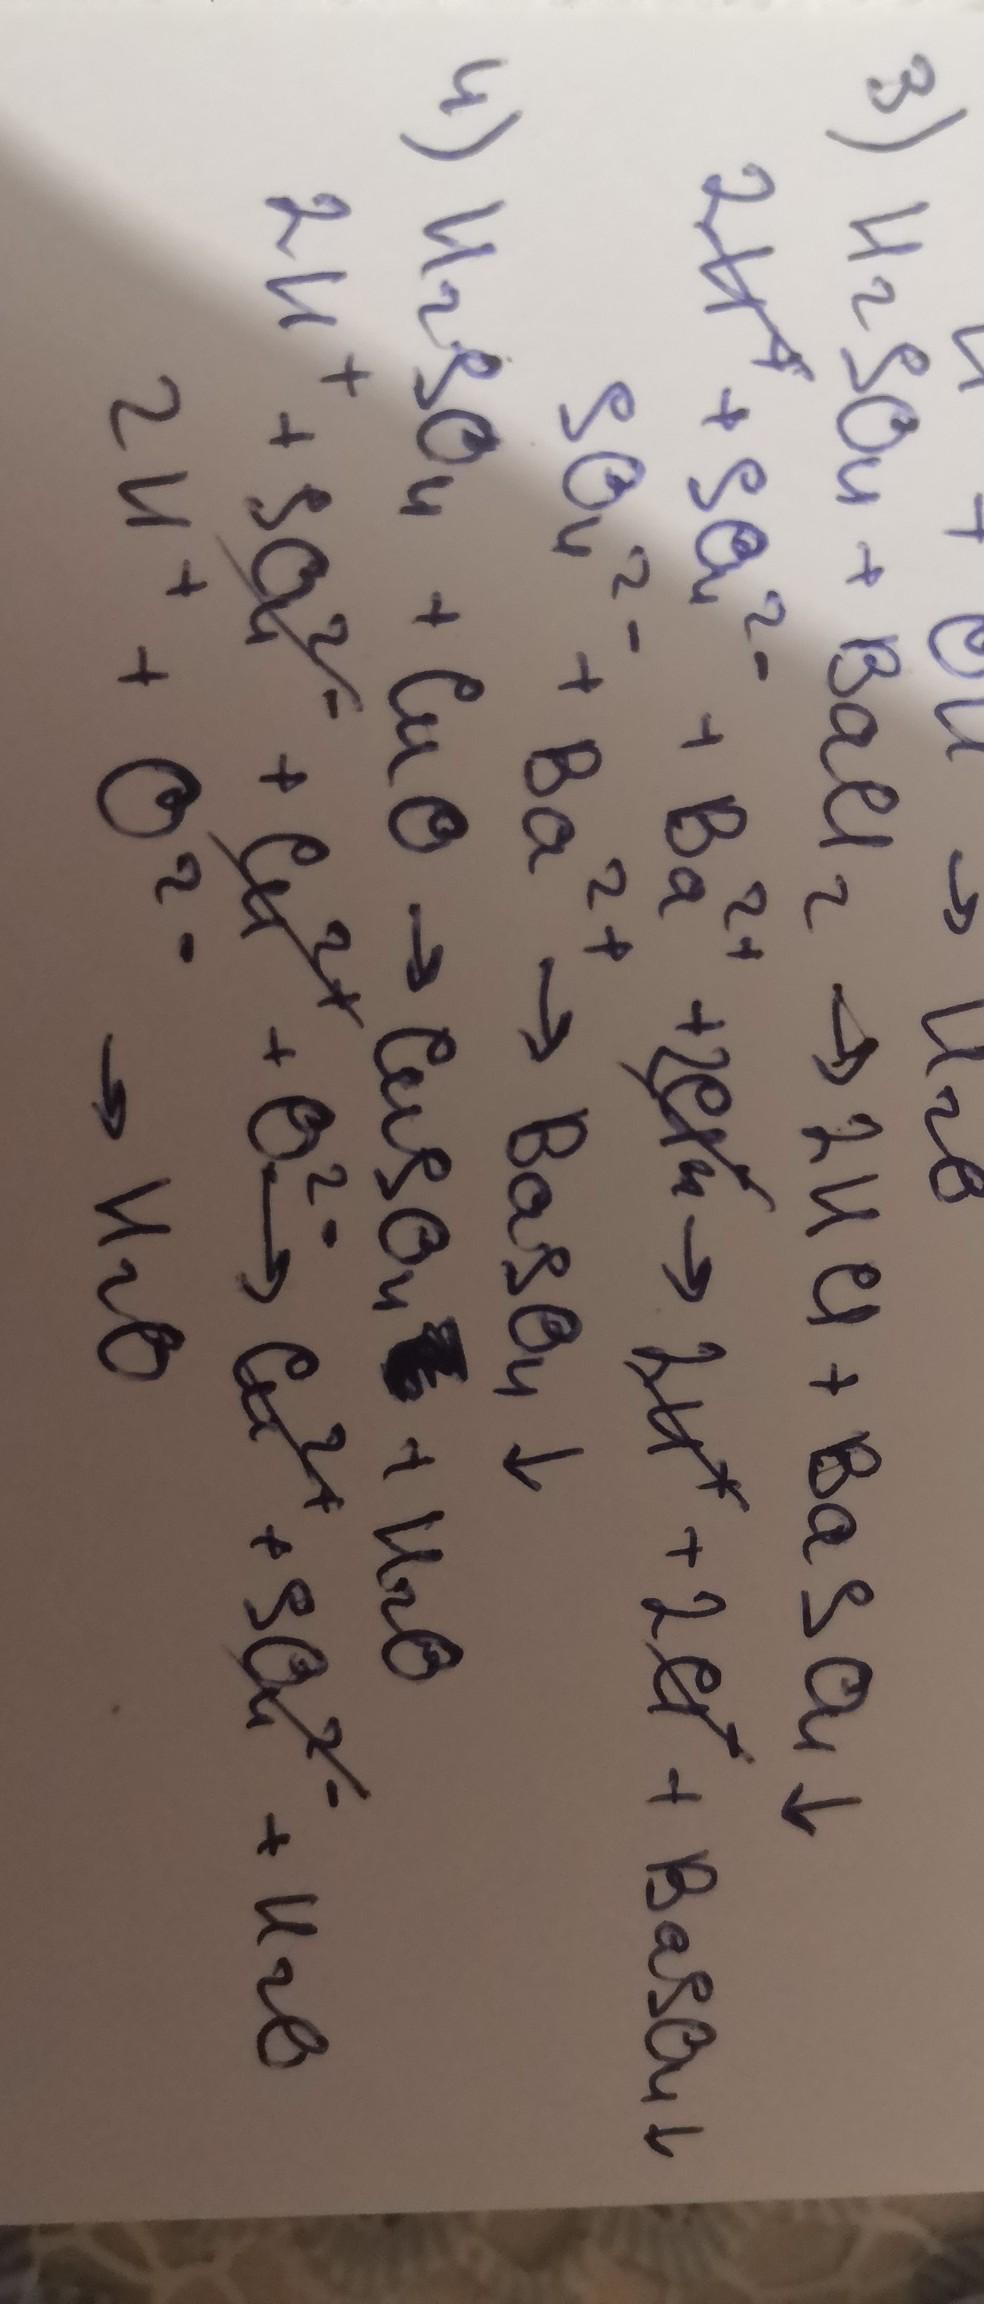 H + OH → H2O
3) H2SO4 + BaCl2 → 2HCl + BaSO4↓
2H+ + SO4 2- + Ba2+ + 2Cl- → 2H+ + 2Cl- + BaSO4↓
SO4 2- + Ba2+ → BaSO4↓
4) H2SO4 + CuO → CuSO4 + H2O
2H+ + SO4 2- + Cu2+ + O2- → Cu2+ + SO4 2- + H2O
2H+ + O2- → H2O